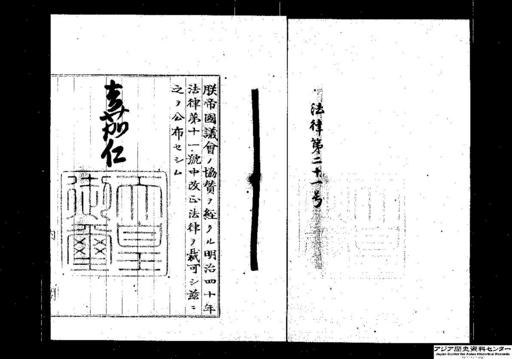 法律第二十一号
朕帝國議會ノ協賛ヲ經タル明治四十年
法律第十一號中改正法律ヲ裁可シ茲ニ
之ヲ公布セシム
嘉仁
天皇
御璽
アジア歴史資料センター
Japan Center for Asian Historical Records